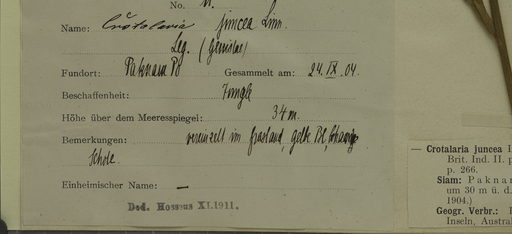 No. 11.
Name: Crotalaria juncea Linn.
Leg. (
Fundort: Paknam Po Gesammelt am: 24. IX. 04.
Beschaffenheit: Jungle
Höhe über dem Meeresspiegel: 34 m.
Bemerkungen: vereinzelt im Grasland, gelbe Bl,
Schote.
Einheimischer Name: —
Ded. Hosseus XI.1911.
— Crotalaria juncea L
Brit. Ind. II. p
p. 266.
Siam: Paknan
um 30 m ü. d.
1904.)
Geogr. Verbr.: I
Inseln, Austral